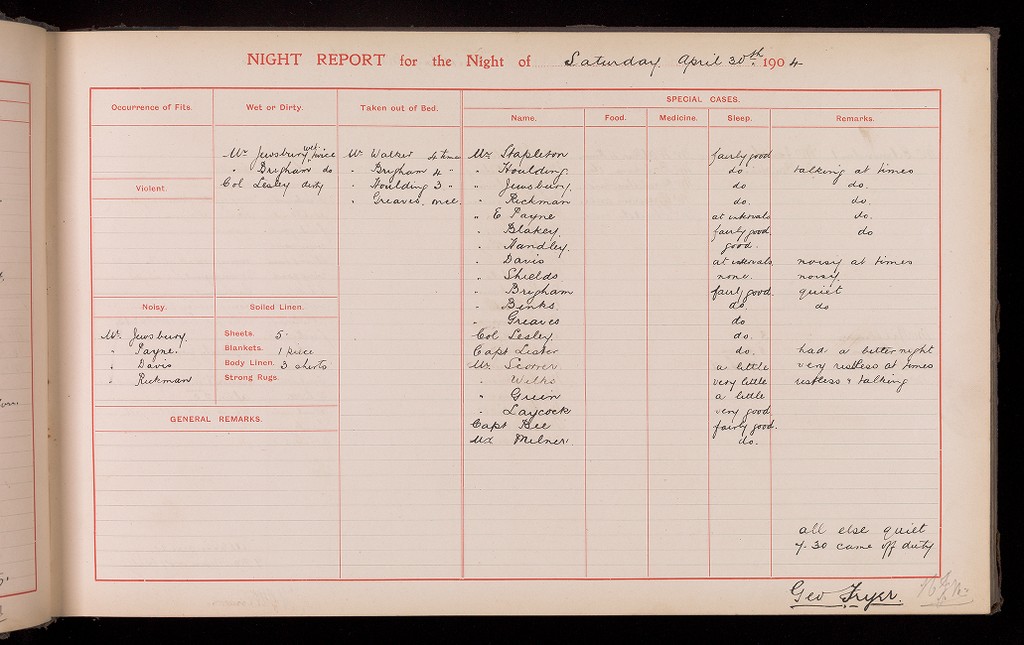 NIGHT REPORT for the Night of Saturday April 30th 1904
Occurrence of Fits.
Violent.
Noisy.
Mr. Jewsbury.
" Payne.
" Davis
" Rickman
Wet or Dirty.
Mr Jewsbury wet twice
" Brigham do
Col Lesley dirty
Soiled Linen.
Sheets. 5.
Blankets. 1 piece
Body Linen. 3 shirts
Strong Rugs.
GENERAL REMARKS.
Taken out of Bed.
Mr Walker 4 time
" Brigham 4 "
" Houlding 3 "
" Greaves. once.
SPECIAL CASES.
Name. Food. Medicine. Sleep. Remarks.
Mr Stapleton fairly good
" Houlding. do talking at times
" Jewsbury. do do.
" Rickman do. do.
" E Payne at intervals do.
" Blakey. fairly good do
" Handley. good.
" Davis at intervals noisy at times
" Shields none. noisy
" Brigham fairly good. quiet
" Binks. do. do
" Greaves do
Col Lesley. do.
Capt Lister do. had a better night
Mr. Scorer. a little very restless at times
" Wilks very little restless & talking
" Green a little
" Laycock very good
Capt Bee fairly good.
Milner do.
all else quiet
7-30 came off duty
Geo Fryer.